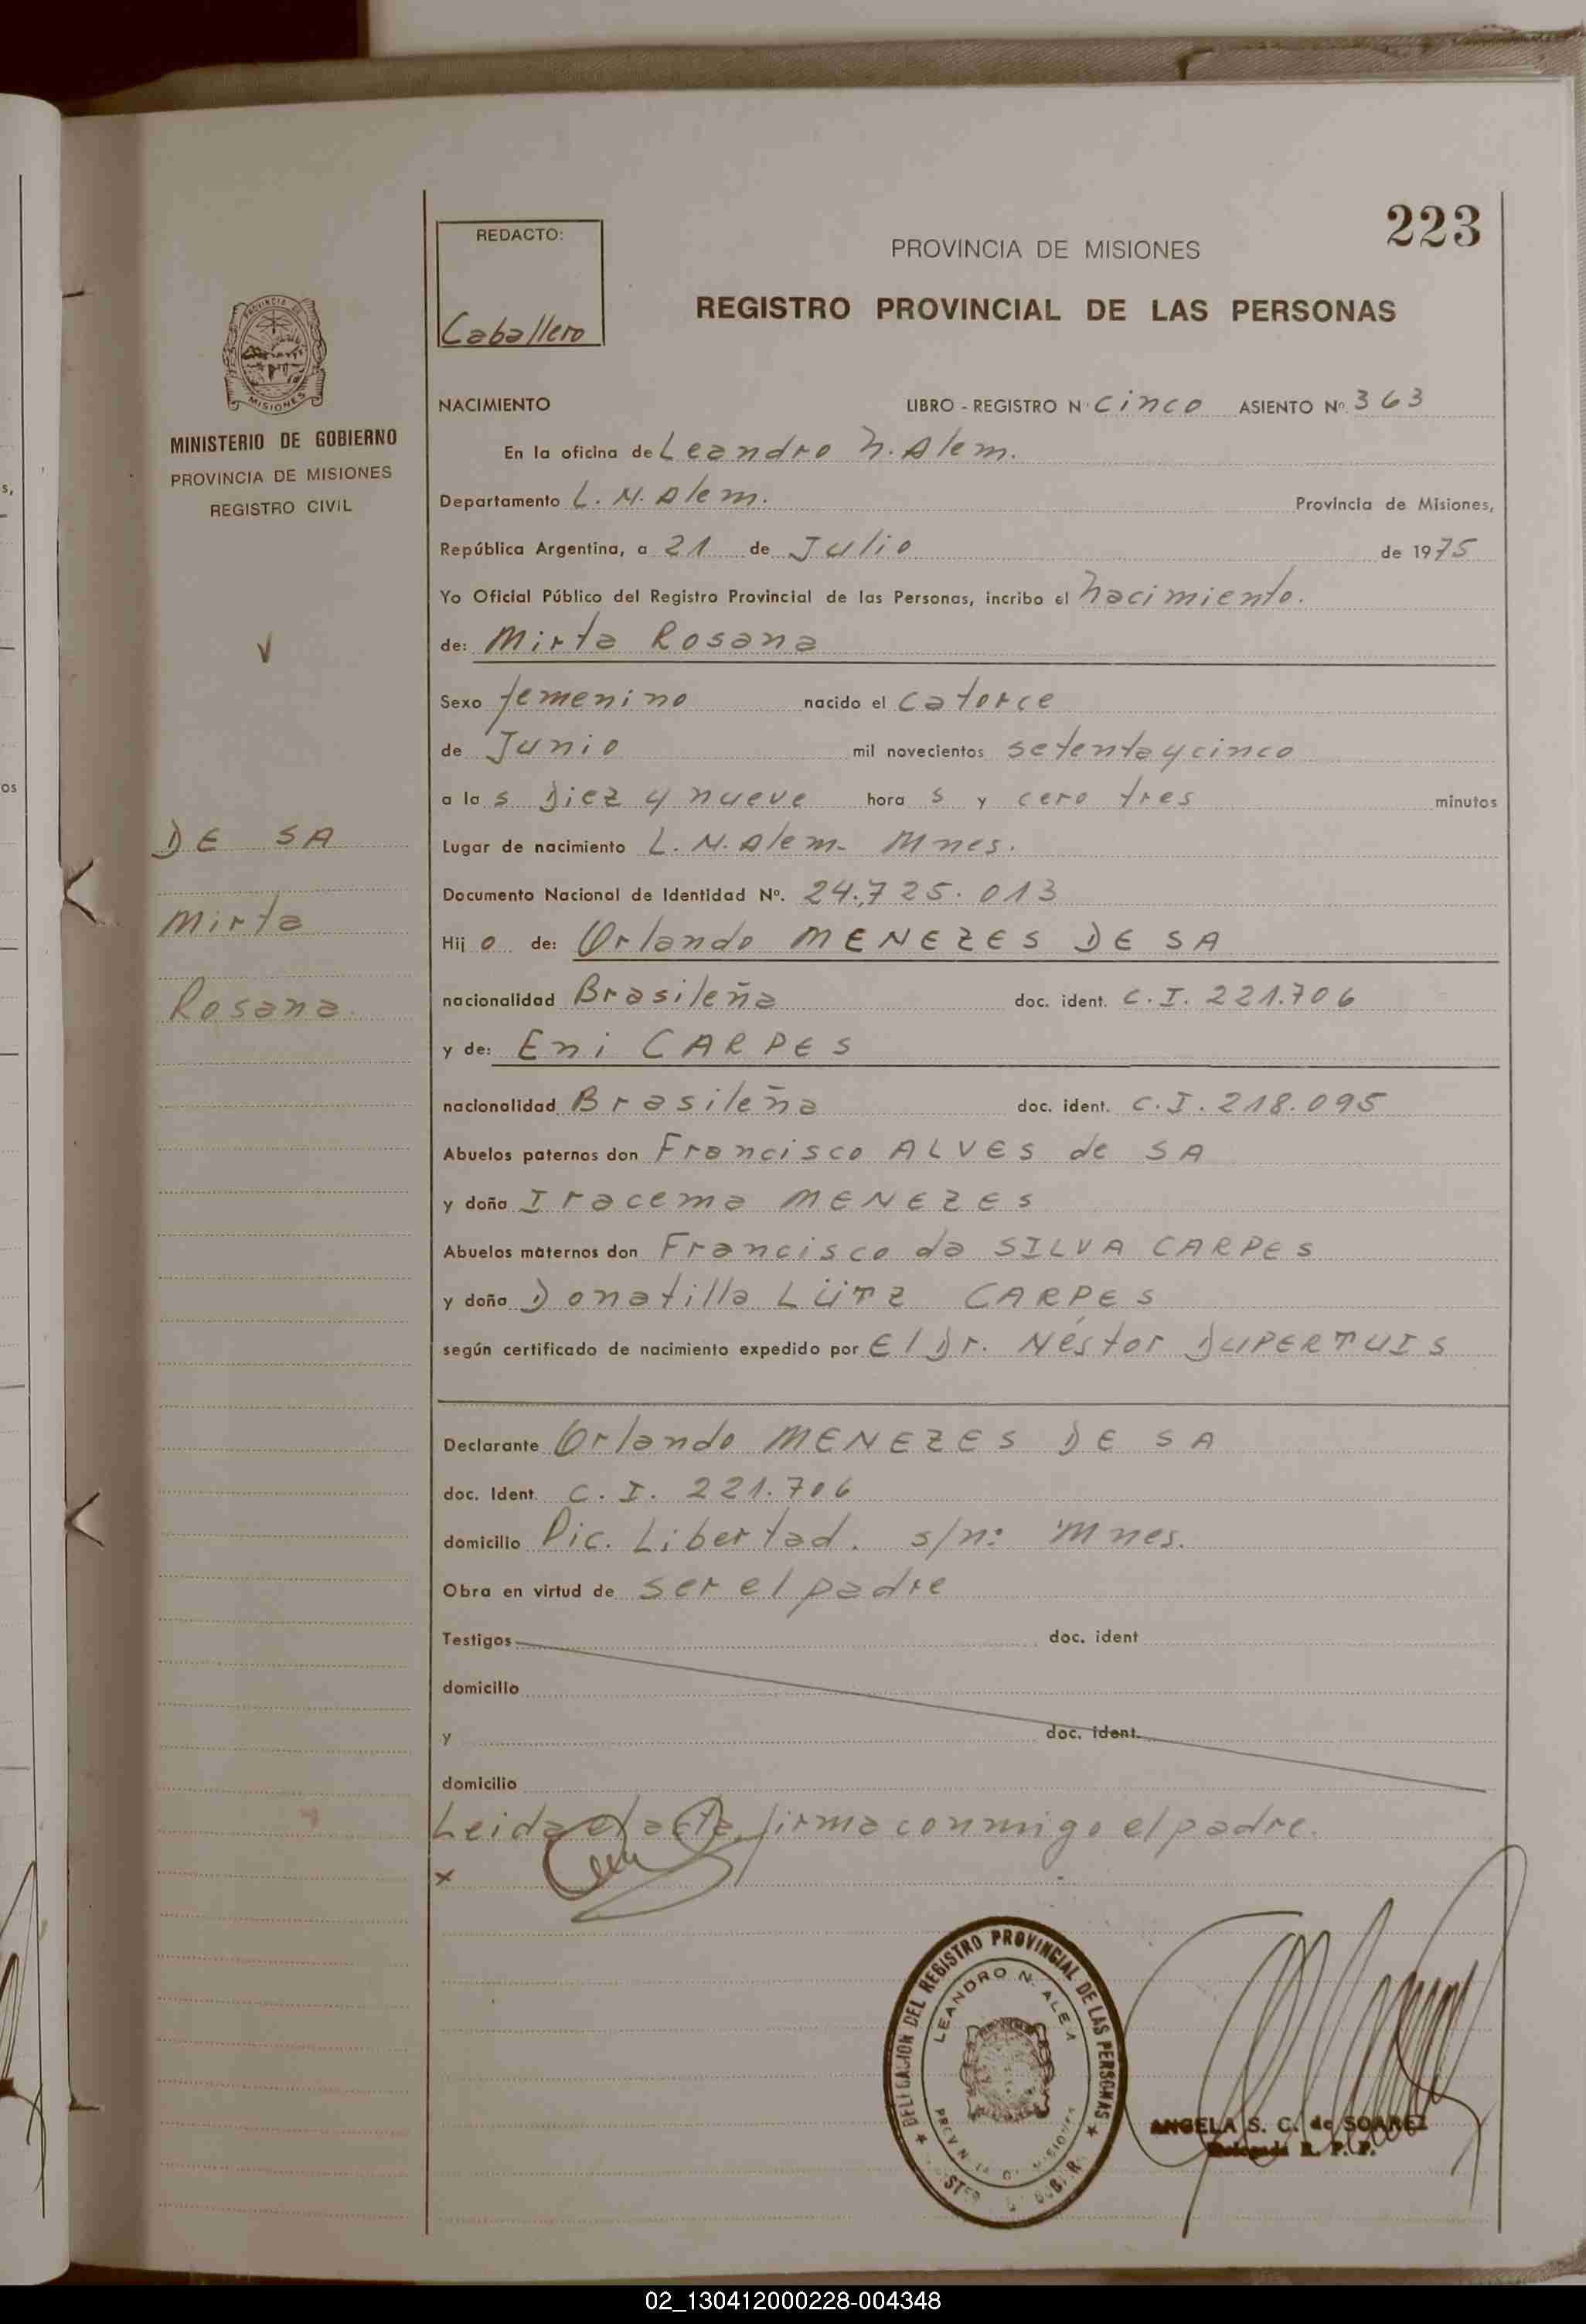 223
REDACTO:
Caballero
PROVINCIA DE MISIONES
REGISTRO PROVINCIAL DE LAS PERSONAS
PROVINCIA
MISIONES
MINISTERIO DE GOBIERNO
PROVINCIA DE MISIONES
REGISTRO CIVIL
DE SA
Mirta
Rosana
NACIMIENTO LIBRO - REGISTRO N° cinco ASIENTO Nº 363
En la oficina de Leandro N. Alem.
Departamento L. N. Alem. Provincia de Misiones,
República Argentina, a 21 de Julio de 1975
Yo Oficial Público del Registro Provincial de las Personas, incribo el nacimiento.
de: Mirta Rosana
Sexo femenino nacido el catorce
de Junio mil novecientos setentaycinco
a las Diez y nueve horas y cero tres minutos
Lugar de nacimiento L. N. Alem. Mnes.
Documento Nacional de Identidad Nº. 24.725.013
Hijo de: Orlando MENEZES DE SA
nacionalidad Brasileña doc. ident. C.I. 221.706
y de: Eni CARPES
nacionalidad Brasileña doc. ident. C.I. 218.095
Abuelos paternos don Francisco ALVES de SA
y doña Iracema MENEZES
Abuelos maternos don Francisco da SILVA CARPES
y doña Donatilla LÜTZ CARPES
según certificado de nacimiento expedido por El Dr. Néstor DUPERTUIS
Declarante Orlando MENEZES DE SA
doc. Ident. C.I. 221.706
domicilio Pic. Libertad. s/n: Mnes.
Obra en virtud de ser el padre
Testigos doc. ident
domicilio
y doc. ident.
domicilio
Leida el acta, firma conmigo el padre.
x
DELEGACION DEL REGISTRO PROVINCIAL DE LAS PERSONAS
LEANDRO N. ALEM
ANGELA S. C. de SOAREZ
Delegada R. P. P.
02_130412000228-004348